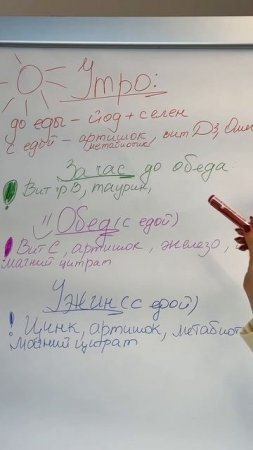 Утро:
до еды - йод + селен
с едой - артишок, вит D3, Оме
(метабиотик)
За час до обеда
! Вит гр B, таурин,
!! Обед (с едой)
! Вит C, артишок, железо,
магний цитрат
Ужин (с едой)
! Цинк, артишок, метабиот
магний цитрат